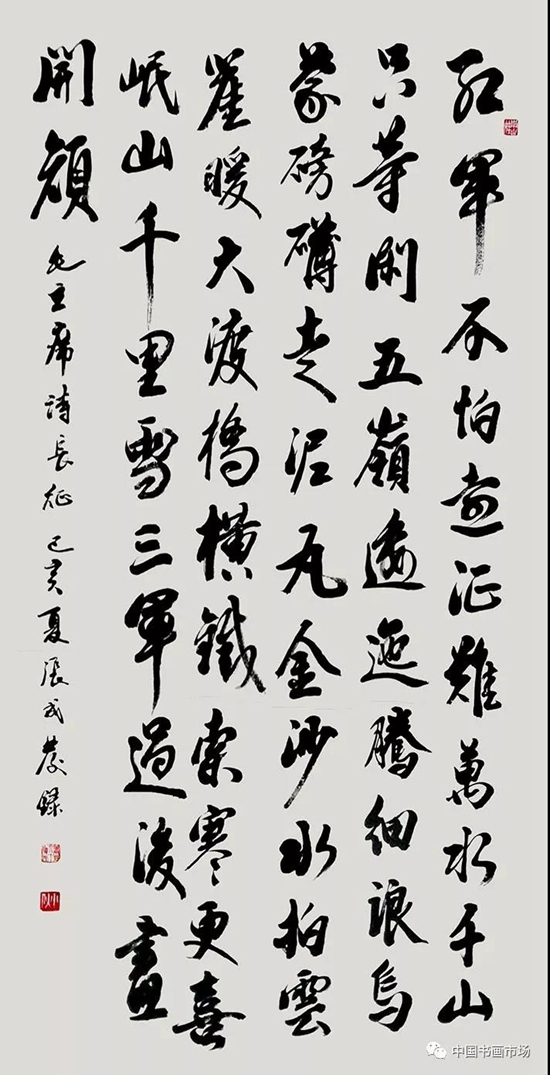 紅軍不怕遠征難萬水千山
只等閑五嶺逶迤騰細浪烏
蒙磅礴走泥丸金沙水拍雲
崖暖大渡橋橫鐵索寒更喜
岷山千里雪三軍過後盡
開顏
毛主席詩長征 己亥夏張錄
中国书画市场